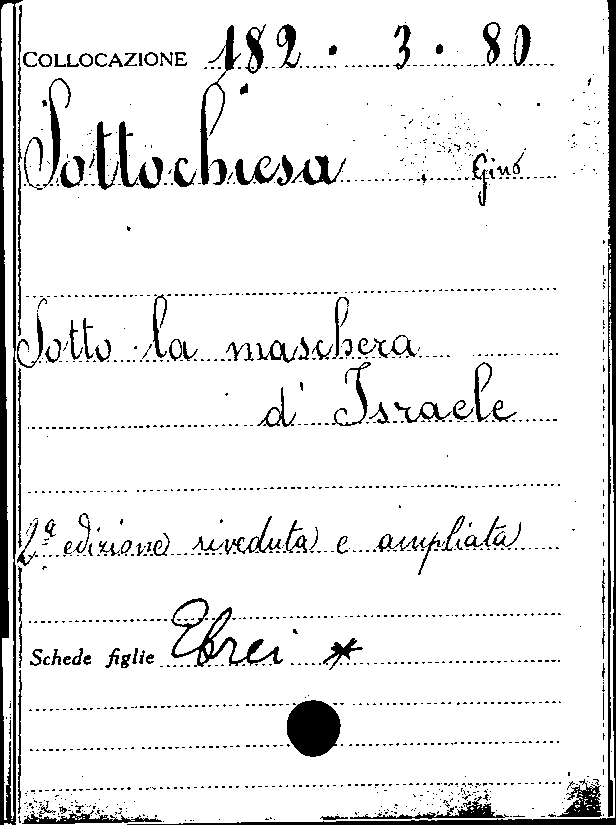 COLLOCAZIONE 182 · 3 · 80
Sottochiesa, Gino
Sotto la maschera
d' Israele
2ª edizione riveduta e ampliata
Schede figlie Ebrei *